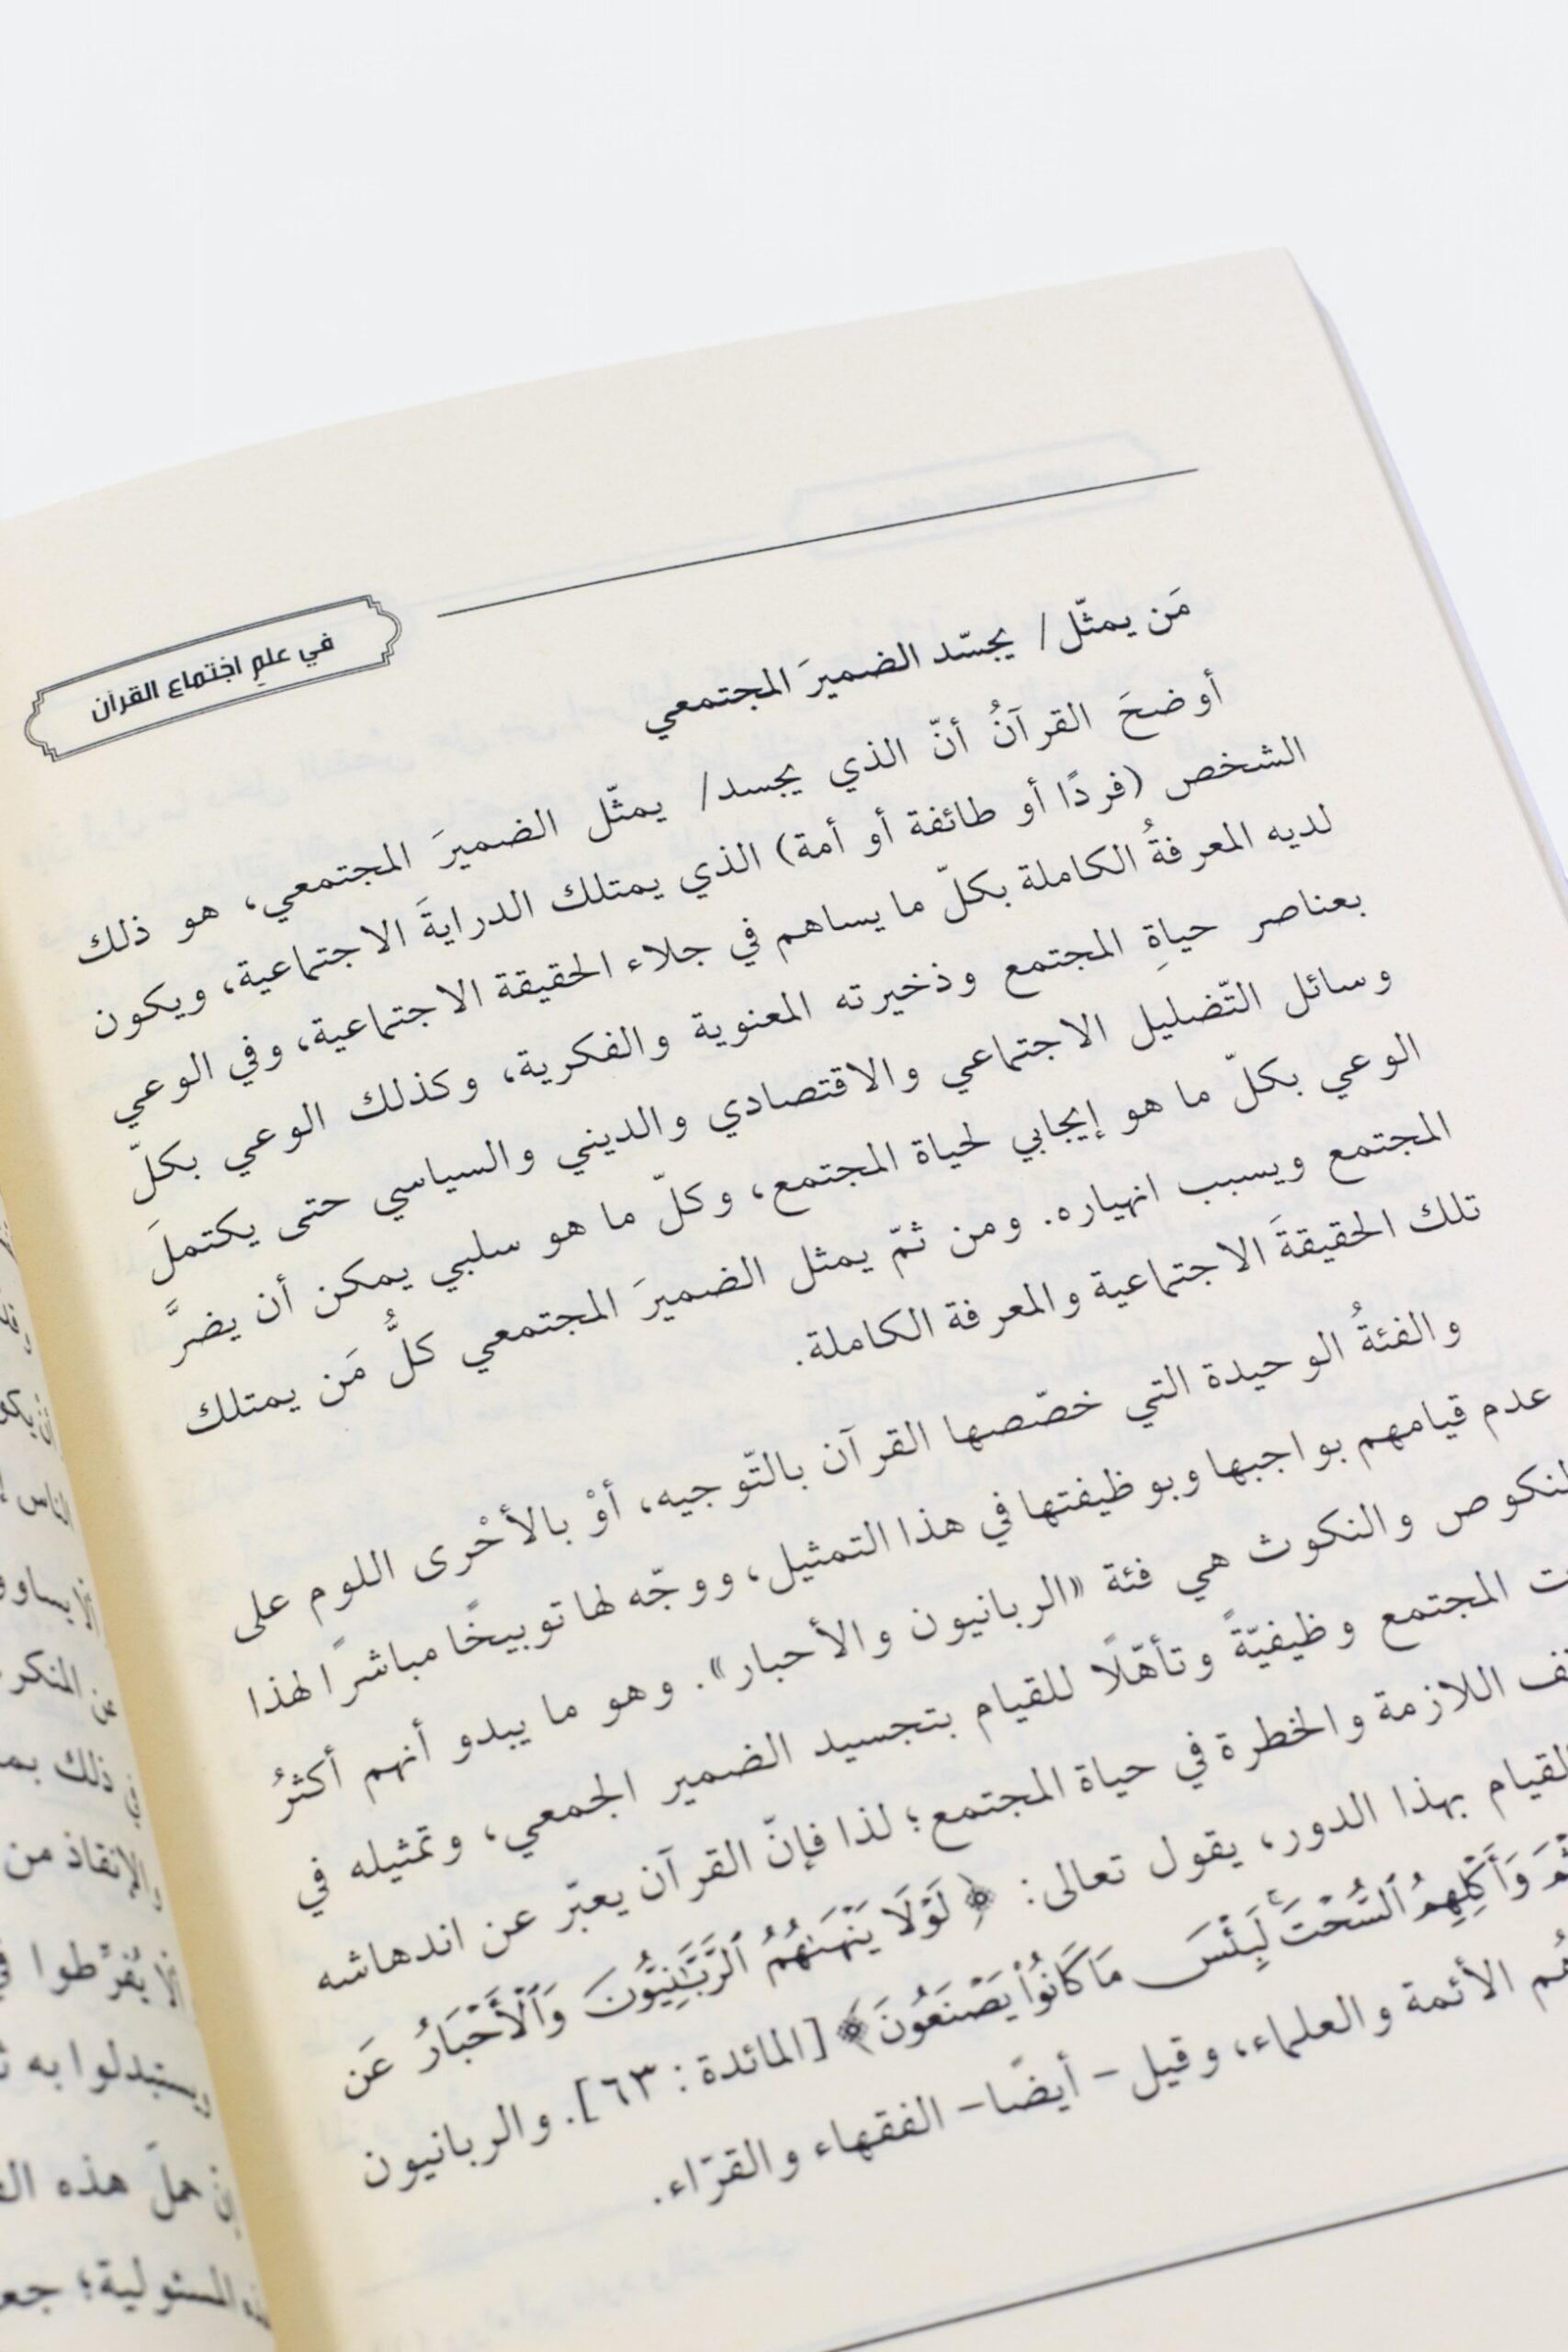 في علمِ اجتماع القرآن
مَن يمثّل/ يجسّد الضميرَ المجتمعي
أوضحَ القرآنُ أنّ الذي يجسد/ يمثّل الضميرَ المجتمعي، هو ذلك
الشخص (فردًا أو طائفة أو أمة) الذي يمتلك الدرايةَ الاجتماعية، ويكون
لديه المعرفةُ الكاملة بكلّ ما يساهم في جلاء الحقيقة الاجتماعية، وفي الوعي
بعناصر حياةِ المجتمع وذخيرته المعنوية والفكرية، وكذلك الوعي بكلّ
وسائل التّضليل الاجتماعي والاقتصادي والديني والسياسي حتى يكتملَ
الوعي بكلّ ما هو إيجابي لحياة المجتمع، وكلّ ما هو سلبي يمكن أن يضرَّ
المجتمع ويسبب انهياره. ومن ثمّ يمثل الضميرَ المجتمعي كلُّ مَن يمتلك
تلك الحقيقةَ الاجتماعية والمعرفة الكاملة.
والفئةُ الوحيدة التي خصّصها القرآن بالتّوجيه، أوْ بالأحْرى اللوم على
عدم قيامهم بواجبها وبوظيفتها في هذا التمثيل، ووجّه لها توبيخًا مباشرًا لهذا
النكوص والنكوث هي فئة «الربانيون والأحبار». وهو ما يبدو أنهم أكثرُ
المجتمع وظيفيّةً وتأهّلًا للقيام بتجسيد الضمير الجمعي، وتمثيله في
اللازمة والخطرة في حياة المجتمع؛ لذا فإنّ القرآن يعبّر عن اندهاشه
القيام بهذا الدور، يقول تعالى: ﴿لَوْلَا يَنْهَىٰهُمُ ٱلرَّبَّٰنِيُّونَ وَٱلْأَحْبَارُ عَن
وَأَكْلِهِمُ ٱلسُّحْتَۚ لَبِئْسَ مَا كَانُواْ يَصْنَعُونَ﴾ [المائدة: ٦٣]. والربانيون
هُم الأئمة والعلماء، وقيل - أيضًا- الفقهاء والقرّاء.
الناس
ألا يساوو
عن المنكر
ذلك بمـ
والإنقاذ من
ألا يُفرِّطوا
ويستبدلوا به
هذه
المسئولية؛ جعـ